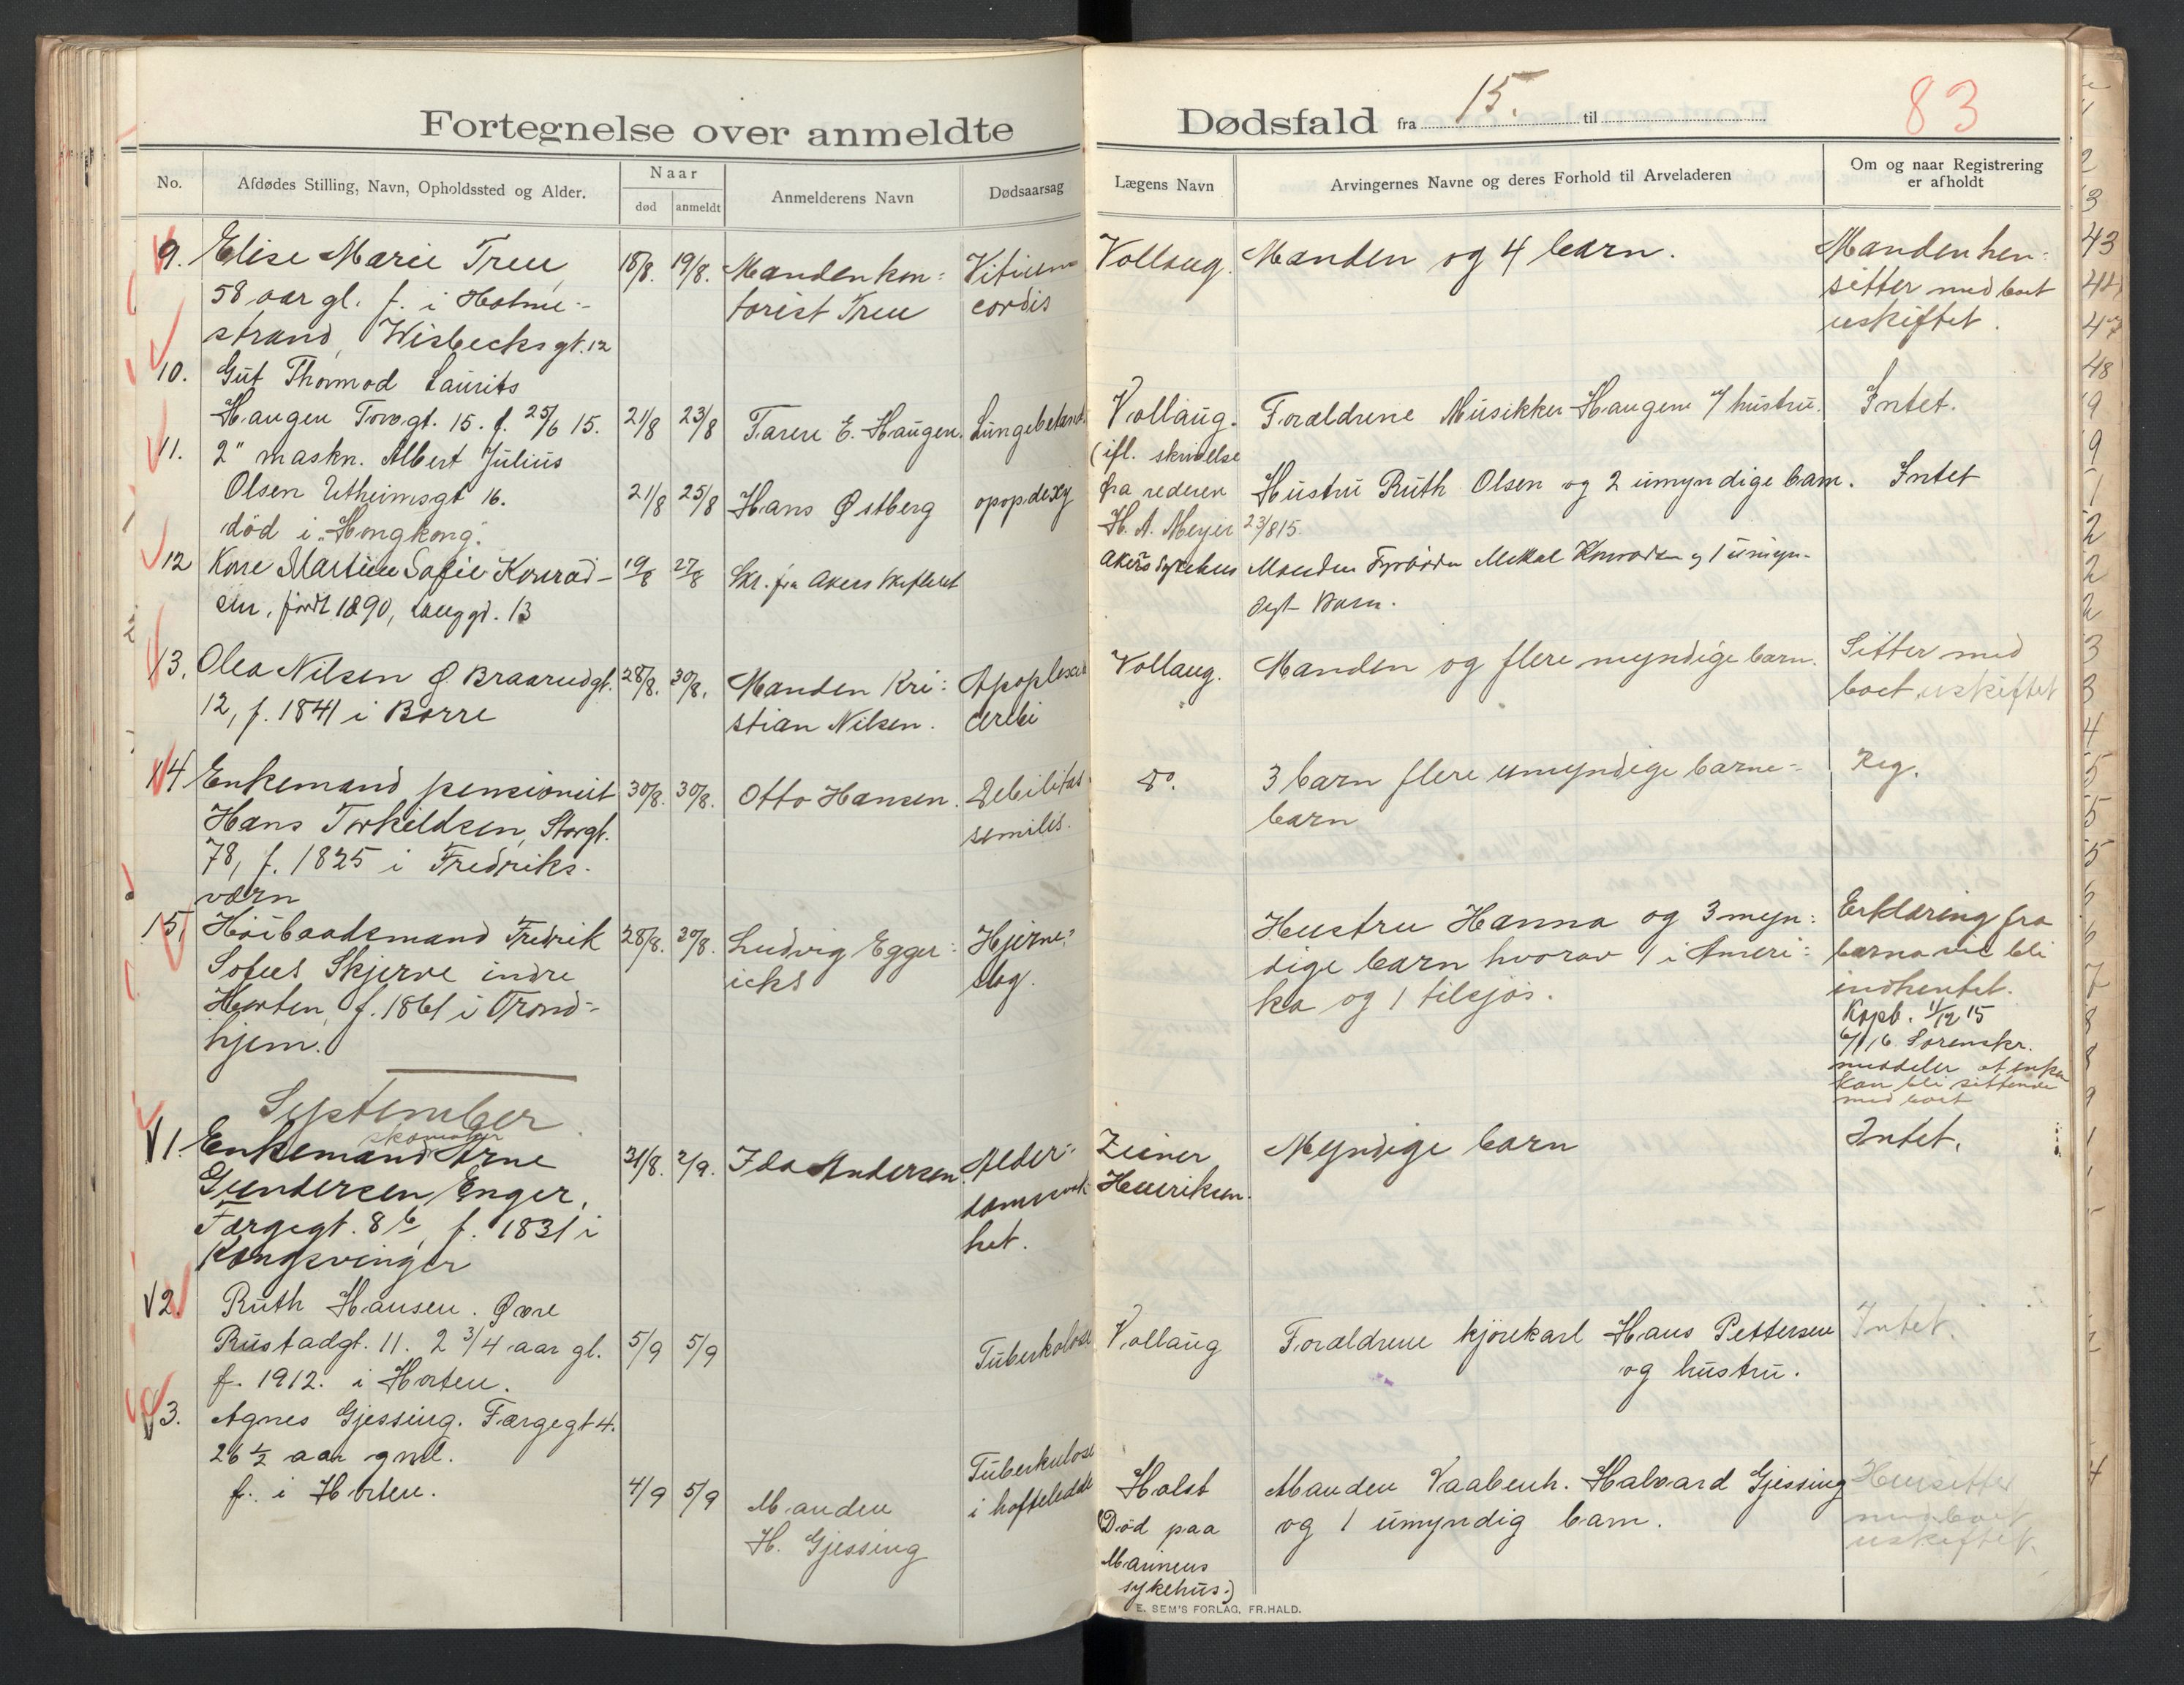 Fortegnelse over anmeldte
Dødsfald fra 15. til
83
No.
Afdødes Stilling, Navn, Opholdssted og Alder.
Naar
død
anmeldt
Anmelderens Navn
Dødsaarsag
Lægens Navn
Arvingernes Navne og deres Forhold til Arveladeren
Om og naar Registrering
er afholdt
9. Elise Marie Treu, 18/8. 19/8. Manden kon: Vitium Vollaug. Manden og 4 barn. Manden hen:
58 aar gl. f. i Holme- torist Treu cordis sitter med boet
strand, Wisbecksgt. 12 uskiftet.
10. Gut Thormod Laurits
Haugen Torvgt. 15. f. 25/6 15. 21/8 23/8 Faren E. Haugen. Lungebetænd. Vollaug. Forældrene Musikker Haugen o/ hustru. Intet.
11. 2" maskn. Albert Julius (ifl. skrivelse
Olsen Utheimsgt 16. 21/8 25/8 Hans Østberg fra rederen Hustru Ruth Olsen og 2 umyndige barn. Intet
død i "Hongkong". H. A. Meyer 23/8 15.
12 Kone Martine Sofie Konrad- 19/8 27/8 Skr. fra Akers Skifteret Akers Sykehus Manden Fyrbøder Konradsen og 1 umyn-
sen, født 1890, Langgt. 13 digt Barn.
13. Olea Nilsen Ø. Braarudgt. 28/8. 30/8. Manden Kri: Vollaug. Manden og flere myndige barn. Sitter med
12, f. 1841 i Borre stian Nilsen. cerebi boet uskiftet
14 Enkemand pensionist 30/8. 30/8. Otto Hansen. Debilitas do. 3 barn flere umyndige barne- Reg.
Hans Torkildsen, Storgt. senilis. barn
78, f. 1825 i Fredriks-
værn
15. Høibaadsmand Fredrik 28/8. 30/8. Ludvig Egger: Hjerne: Hustru Hanna og 3 myn: Erklæring fra
Sofus Skjerve indre icks slag. dige barn hvorav 1 i Ameri: barna vil bli
Horten, f. 1861 i Trond- ka og 1 tilsjøs. indhentet.
hjem. Kopb. 1/12 15
6/1 16 Sorenskr.
meddeler at enken
kan bli sittende
med boet
September.
skomaker
1. Enkemand Arne 31/8. 2/9. Ida Andersen. Alder: Zeiner Myndige barn Intet.
Gundersen Enger, Henriksen.
Færgegt. 8b, f. 1831 i het.
Kongsvinger
2. Ruth Hansen. Øvre
Rustadgt. 11. 2 3/4 aar gl. 5/9 5/9 Tuberkulose Vollaug Forældrene kjørekarl Hans Pettersen Intet.
f. 1912. i Horten. og hustru.
3. Agnes Gjessing. Færgegt 4.
26 1/2 aar gml. Tuberkulose
f. i Horten. 4/9 5/9 Manden i hofteledde Holst Manden Vaabenh. Halvard Gjessing Hensitter
H. Gjessing (Død paa og 1 umyndig barn. med boet
Marinens uskiftet.
sykehus.)
E. SEM'S FORLAG, FR.HALD.